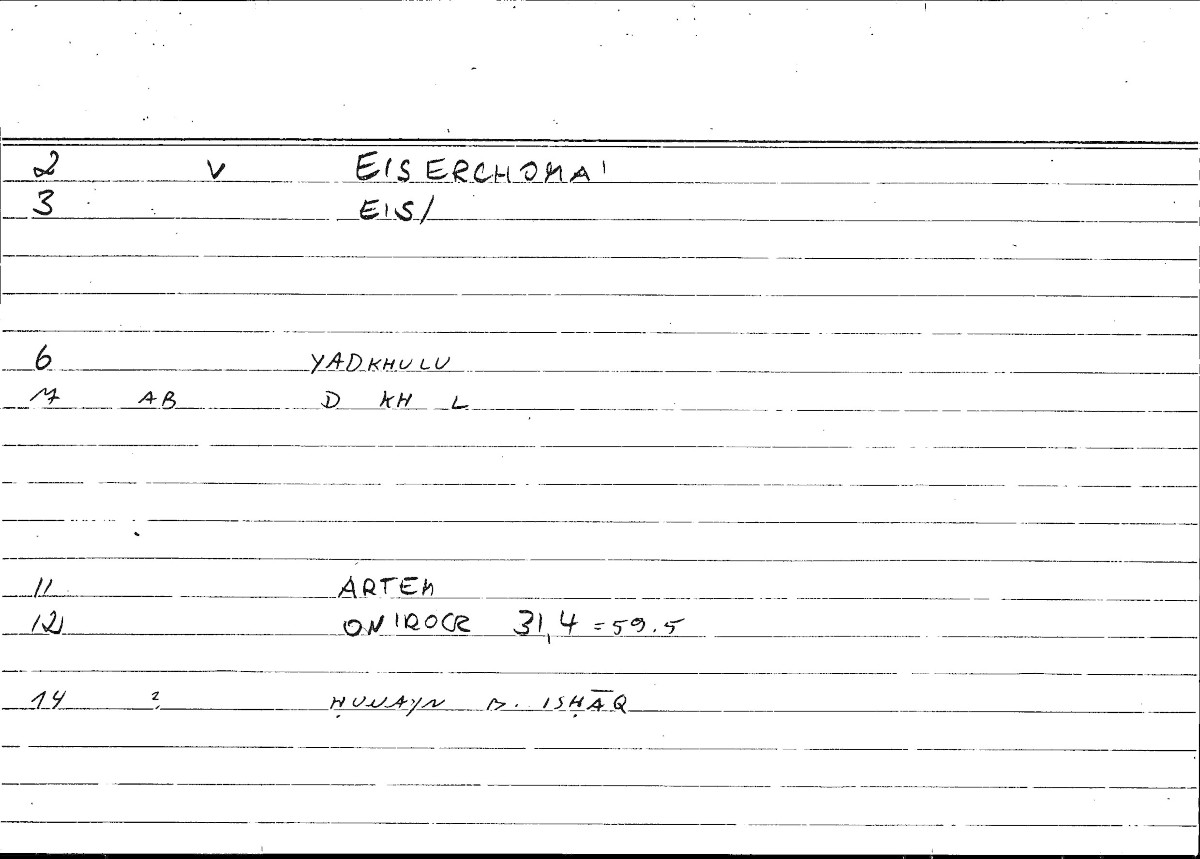 2 V EISERCHOMAI
3 EIS/
6 YADKHULU
7 AB D KH L
11 ARTEM
12 ONIROCR 31,4 = 59.5
14 ? ḤUNAYN B. ISḤĀQ